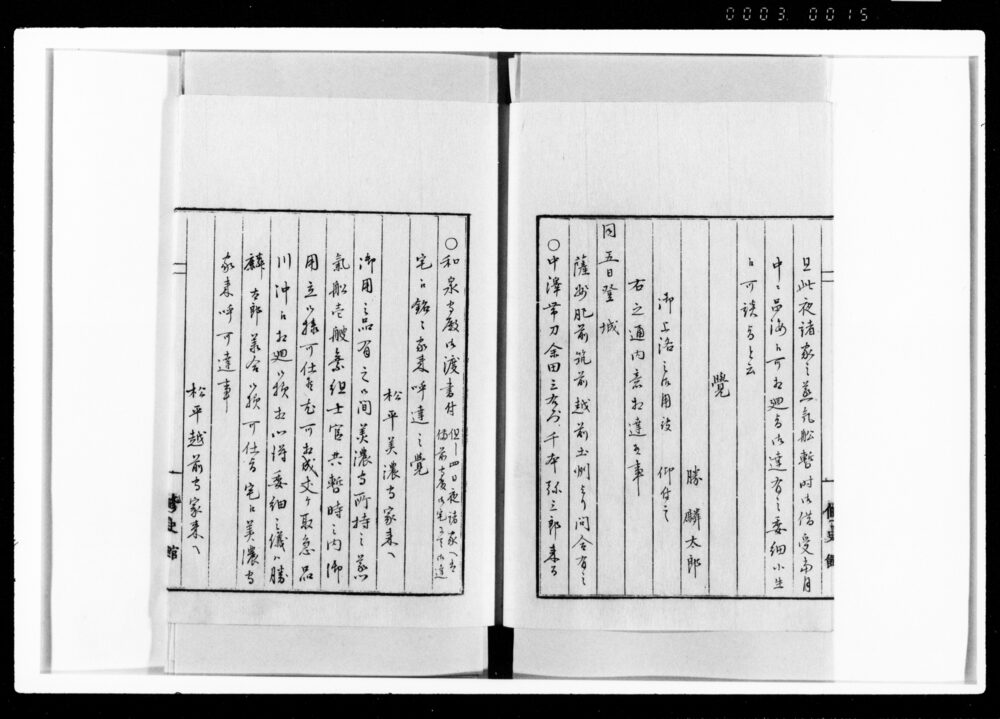 0003 0015
旦此夜諸家之蒸気船暫時御借受当月
中ニ品海ニ可相廻旨御達有之委細小生
ニ可談旨と云
覺
勝麟太郎
御上洛之御用被 仰付之
右之通内意相達候事
同五日登城
薩州肥前筑前越前土州より問合有之
〇中澤帯刀余田三右衛門千本弥三郎来ル
〇和泉守殿御渡書付但シ四日夜諸家へ
備前守殿御宅ニ而御達
宅ニ銘々家来呼達之覺
松平美濃守家来へ
御用之品有之候間美濃守所持之蒸
氣船壱艘乗組士官共暫時之内御
用立候様可仕候尤可相成丈ケ取急品
川沖ニ相廻候様相心得委細之儀ハ勝
麟太郎承合候様可仕旨宅ニ美濃守
家来呼可達事
松平越前守家来へ
修史館